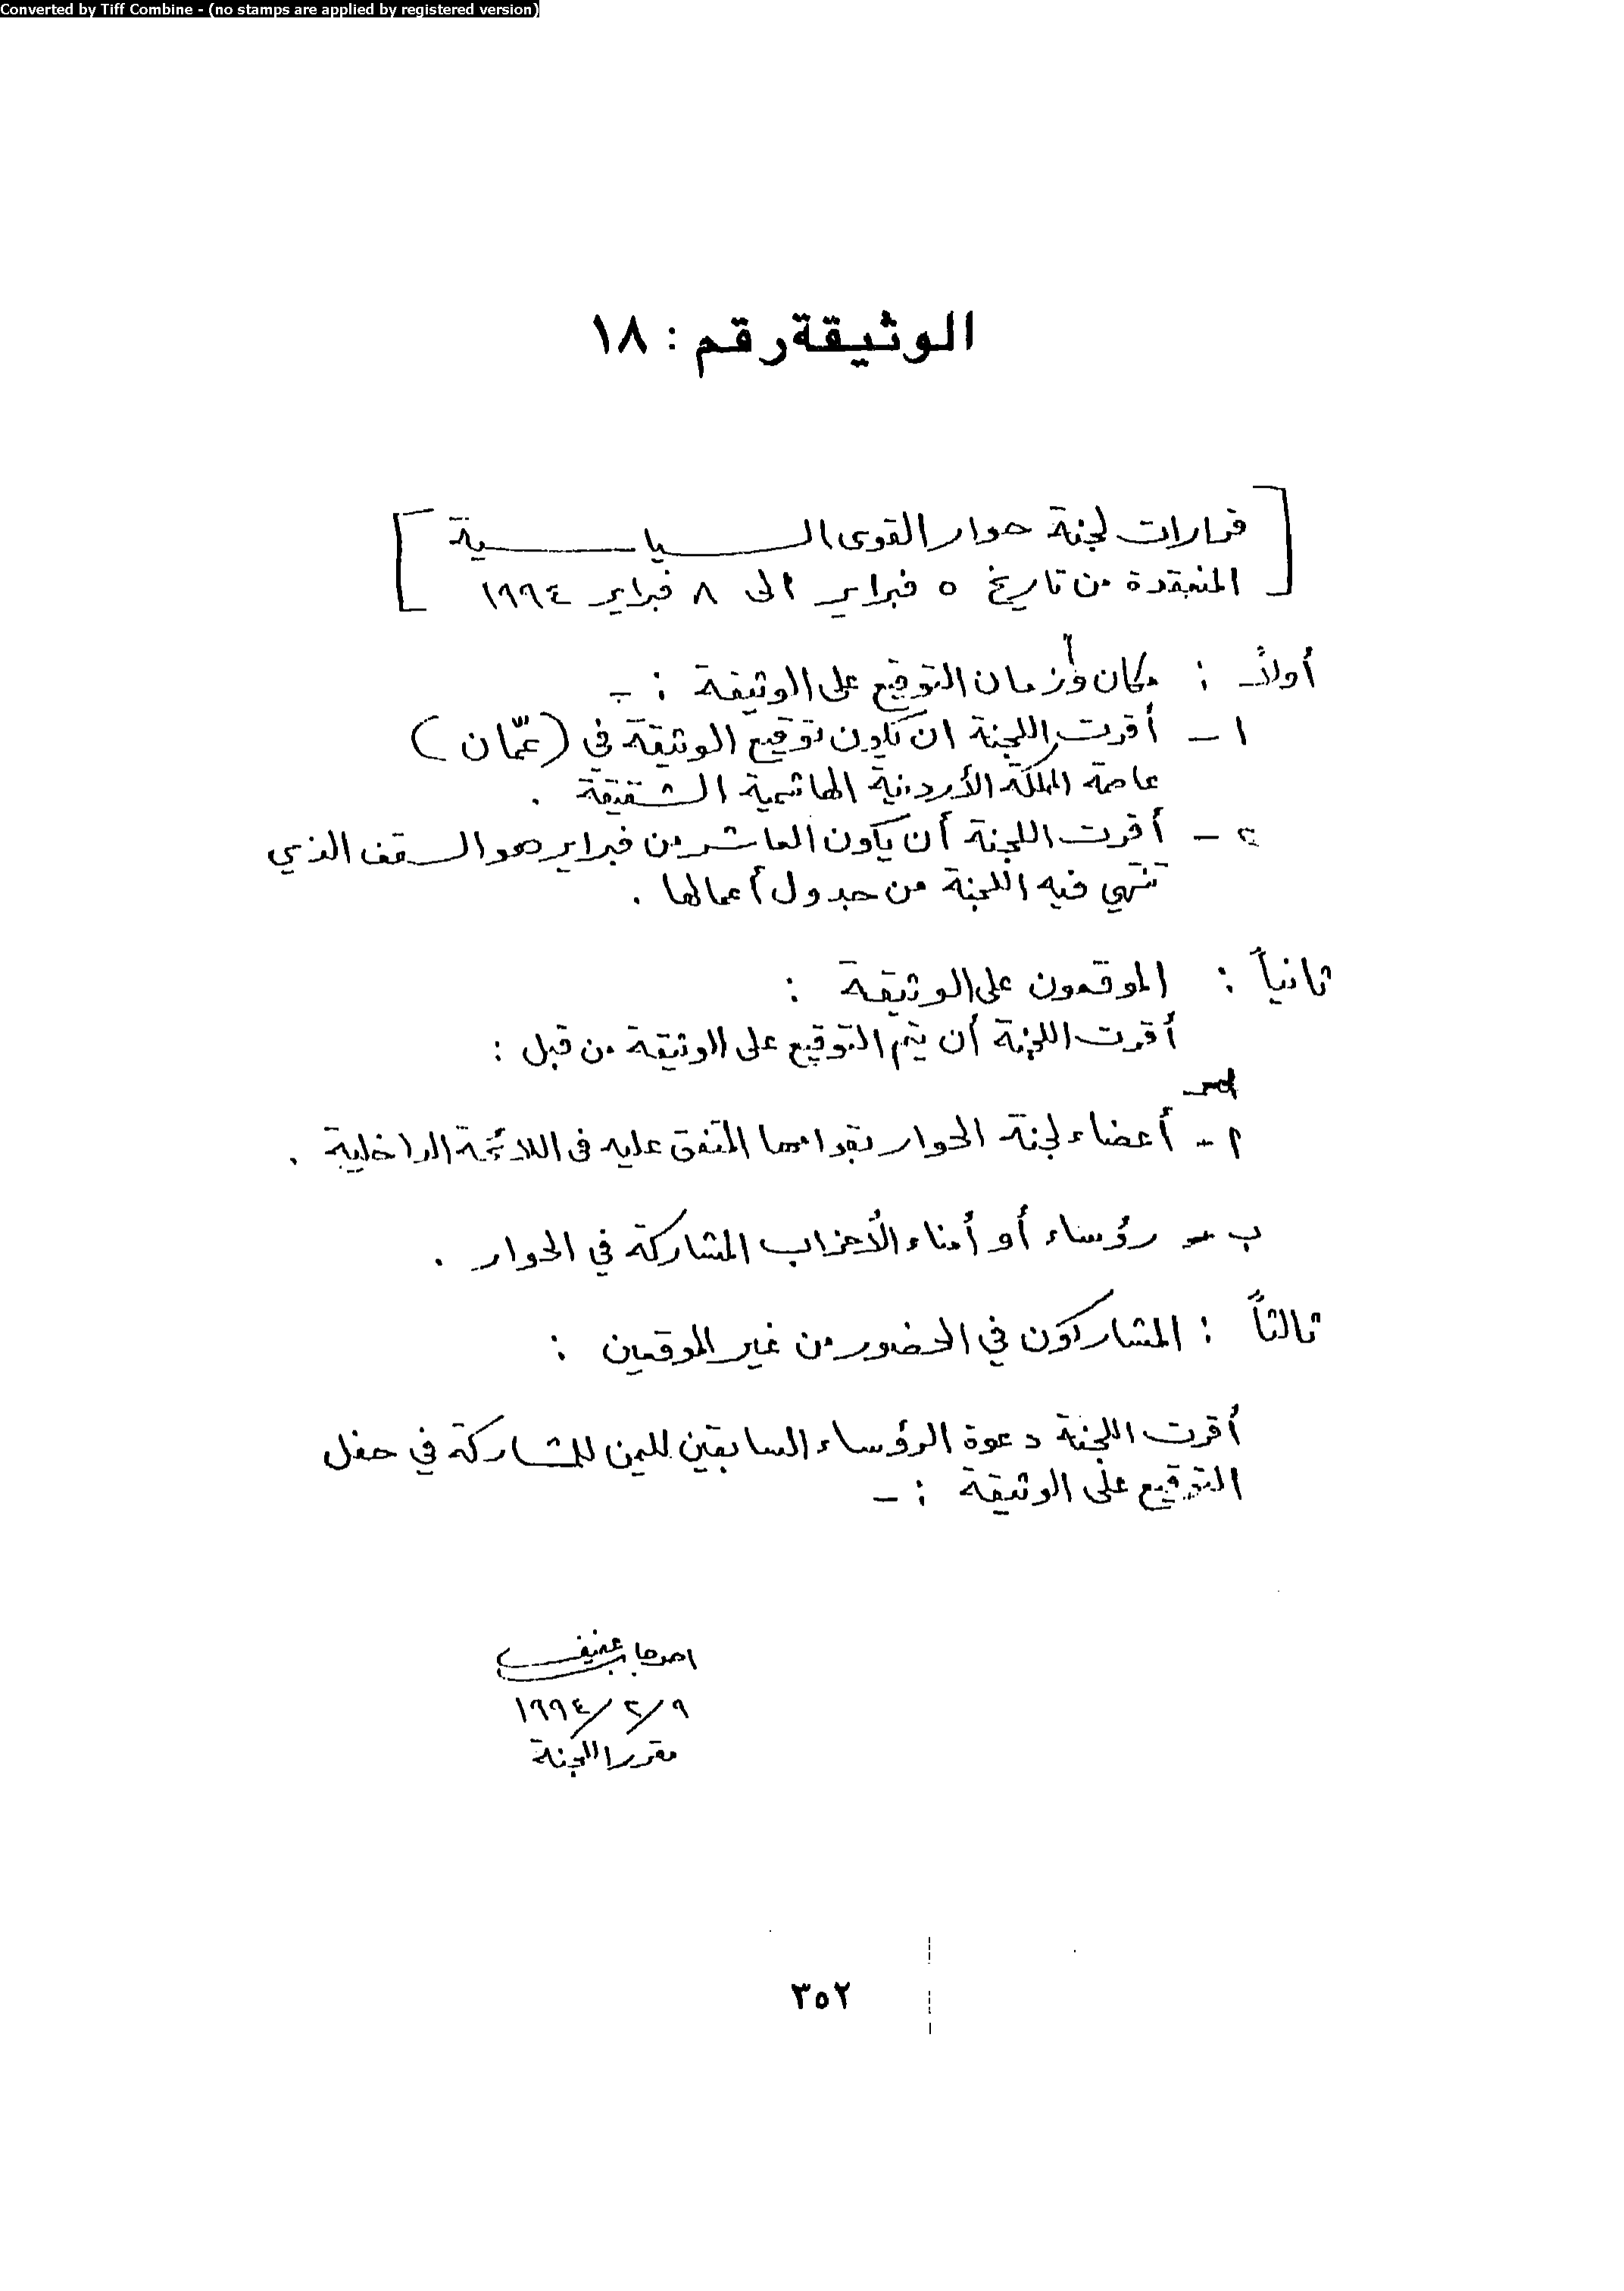 Converted by Tiff Combine - (no stamps are applied by registered version)
الوثيقة رقم : ١٨
[ قرارات لجنة حوار القوى السياسية
المنعقدة من تاريخ ٥ فبراير الى ٨ فبراير ١٩٩٤ ]
أولاً : مكان وزمان التوقيع على الوثيقة :-
١ - أقرت اللجنة ان يكون توقيع الوثيقة في (عمّان)
عاصمة المملكة الأردنية الهاشمية الشقيقة .
٢ - أقرت اللجنة أن يكون العاشر من فبراير هو السقف الذي
تنتهي فيه اللجنة من جدول أعمالها .
ثانياً : الموقعون على الوثيقة :
أقرت اللجنة أن يتم التوقيع على الوثيقة من قبل :
أ - أعضاء لجنة الحوار بقوامها المتفق عليه في اللائحة الداخلية .
ب - رؤساء أو أمناء الأحزاب المشاركة في الحوار .
ثالثاً : المشاركون في الحضور من غير الموقعين :
أقرت اللجنة دعوة الرؤساء السابقين لليمن للمشاركة في حفل
التوقيع على الوثيقة :-
احمد جابر عفيف
٩/٢/١٩٩٤
مقرر اللجنة
٣٥٢